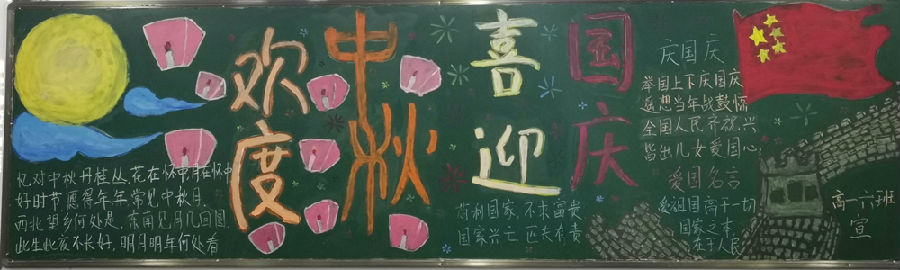 欢度
中秋
喜迎
国庆
忆对中秋丹桂丛,花在杯中月在杯中
好时节愿得年年常见中秋月.
西北望乡何处是,东南见月几回圆.
此生此夜不长好,明月明年何处看
苟利国家,不求富贵
国家兴亡 匹夫有责
庆国庆
举国上下庆国庆
遥想当年战鼓
全国人民齐 兴
皆出儿女爱国心
爱国名言
爱祖国高于一切
国家之本,
在于人民
高一六班
宣